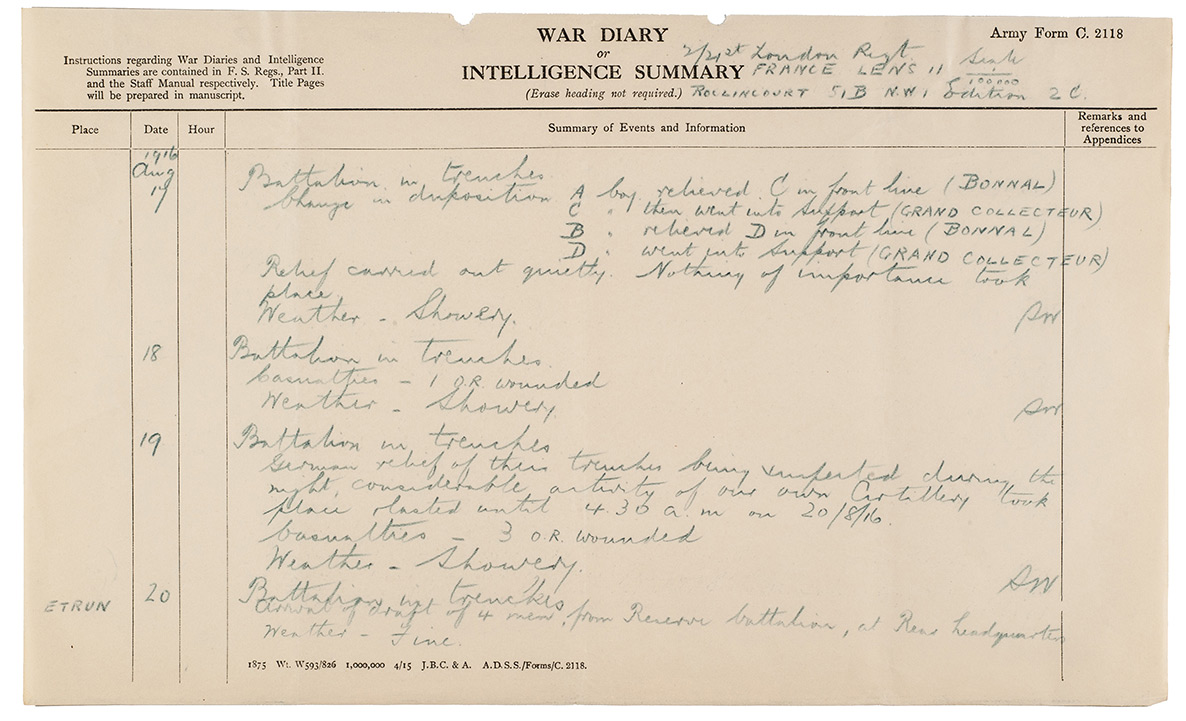 WAR DIARY
or
INTELLIGENCE SUMMARY
(Erase heading not required.)
Army Form C. 2118
Instructions regarding War Diaries and Intelligence
Summaries are contained in F. S. Regs., Part II.
and the Staff Manual respectively. Title Pages
will be prepared in manuscript.
2/21st London Regt.
FRANCE LENS 11 Scale 1/100,000
ROLLINCOURT 51B N.W.1 Edition 2C.
Place Date Hour Summary of Events and Information Remarks and references to Appendices
1916
Aug
17 Battalion in trenches
Change in disposition A Coy. relieved C in front line (BONNAL)
C " then went into support (GRAND COLLECTEUR)
B " relieved D in front line (BONNAL)
D " went into support (GRAND COLLECTEUR)
Relief carried out quietly. Nothing of importance took
place.
Weather - Showery.
18 Battalion in trenches.
Casualties - 1 O.R. wounded
Weather - Showery
19 Battalion in trenches
German relief of their trenches being suspected during the
night, considerable activity of our own Artillery took
place & lasted until 4.30 a.m on 20/8/16.
Casualties - 3 O.R. wounded
Weather - Showery.
ETRUN 20 Battalion in trenches
Arrival of draft of 4 men, from Reserve battalion, at Rear headquarters
Weather - Fine.
1875 Wt. W593/826 1,000,000 4/15 J.B.C. & A. A.D.S.S./Forms/C. 2118.